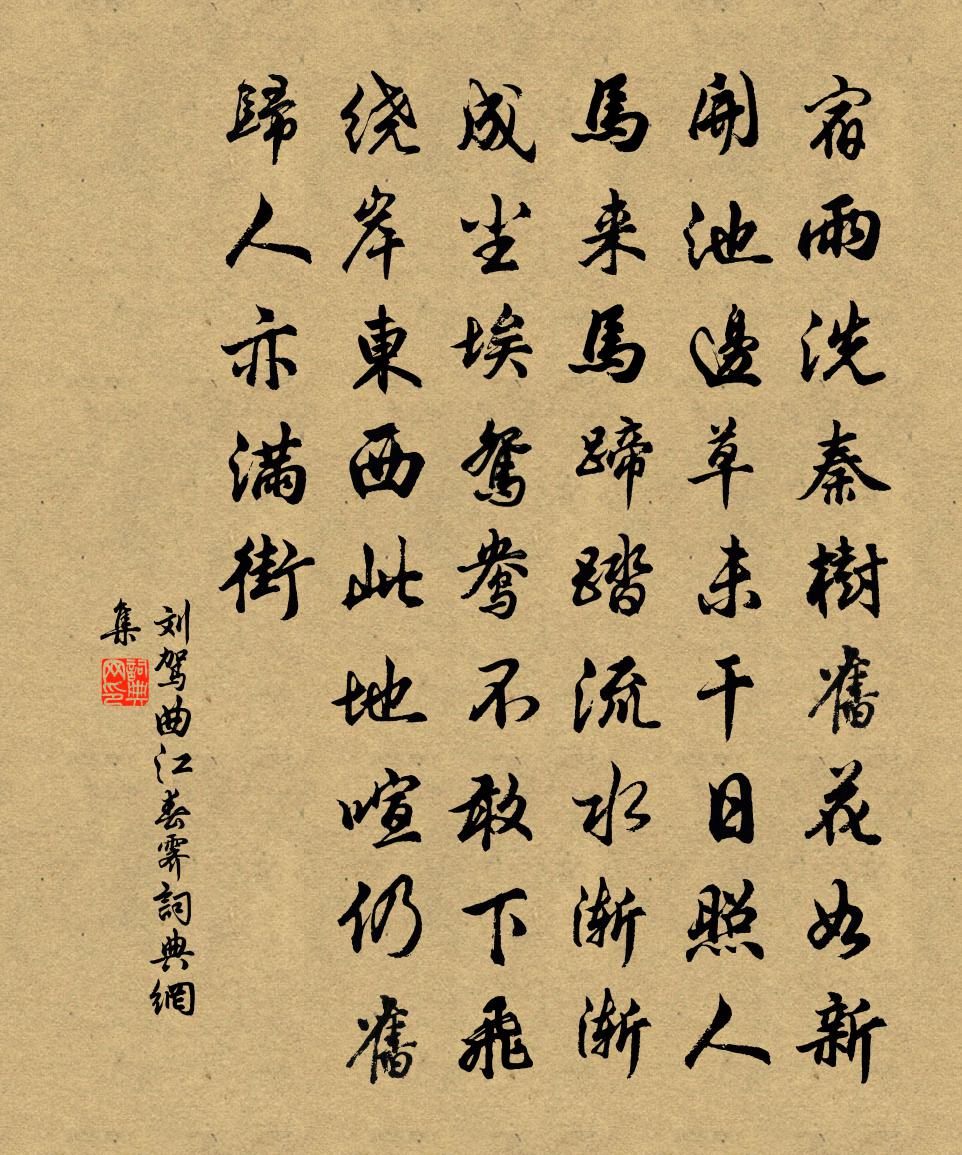 宿雨洗秦樹舊花如新
開池邊草未干日照人
馬来馬蹄踏流水渐渐
成尘埃鴛鴦不敢下飛
绕岸東西此地喧仍舊
歸人亦满街
刘驾曲江春霽詞典網
集
詞典
网印